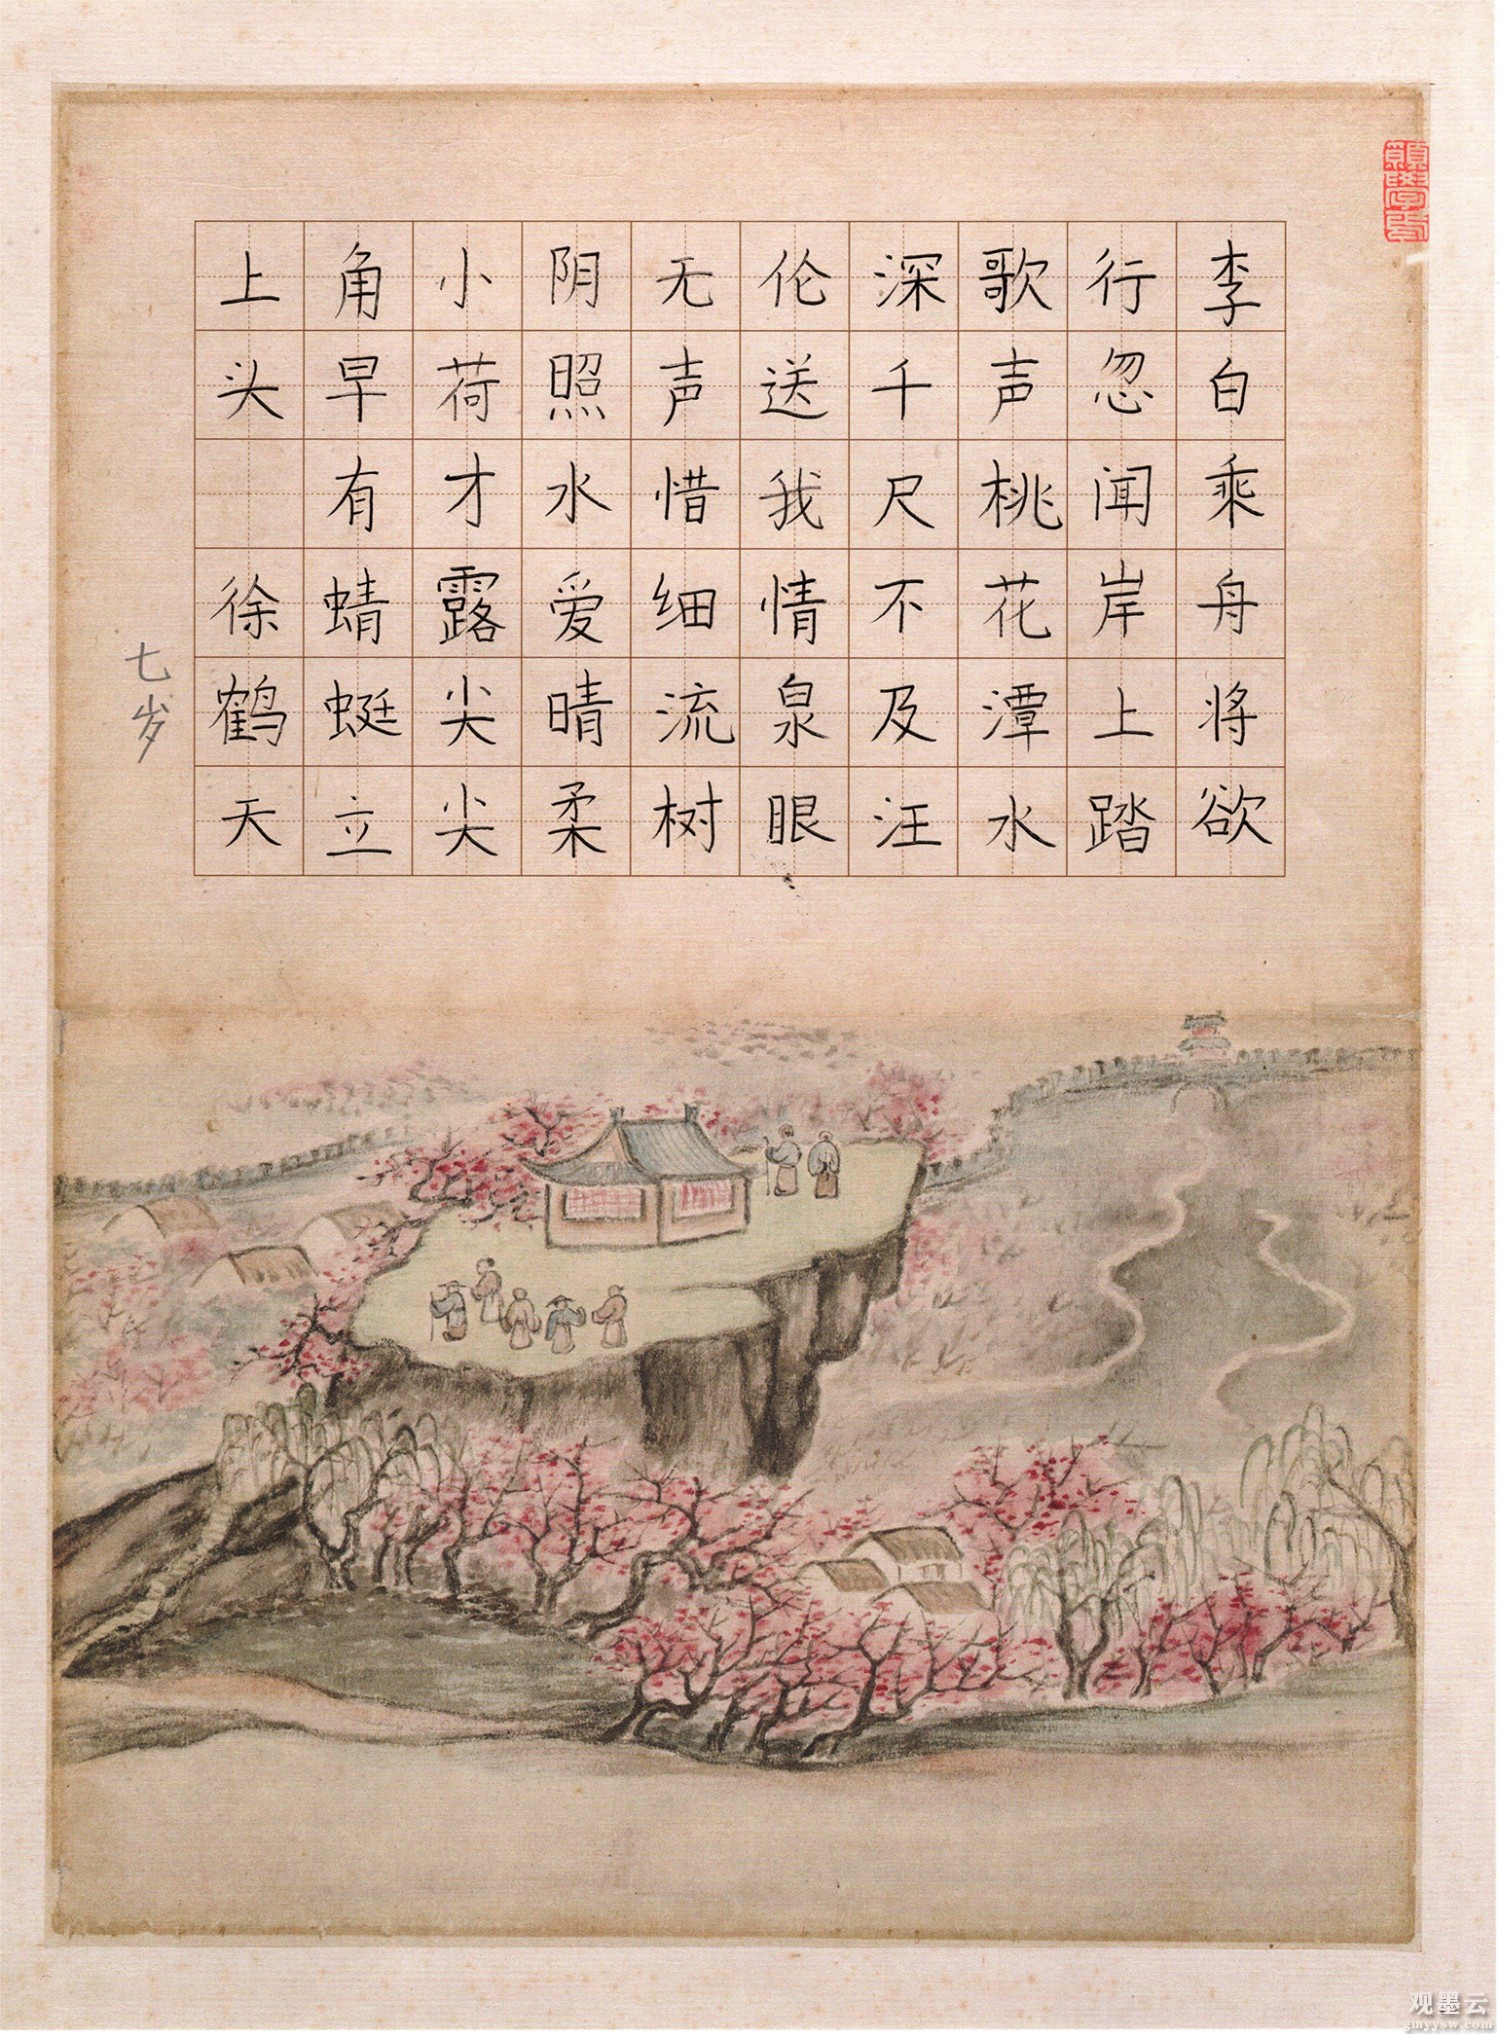 李白乘舟将欲
行忽闻岸上踏
歌声桃花潭水
深千尺不及汪
伦送我情泉眼
无声惜细流树
阴照水爱晴柔
小荷才露尖尖
角早有蜻蜓立
上头 徐鹤天
七岁
观墨云
gmyysw.com